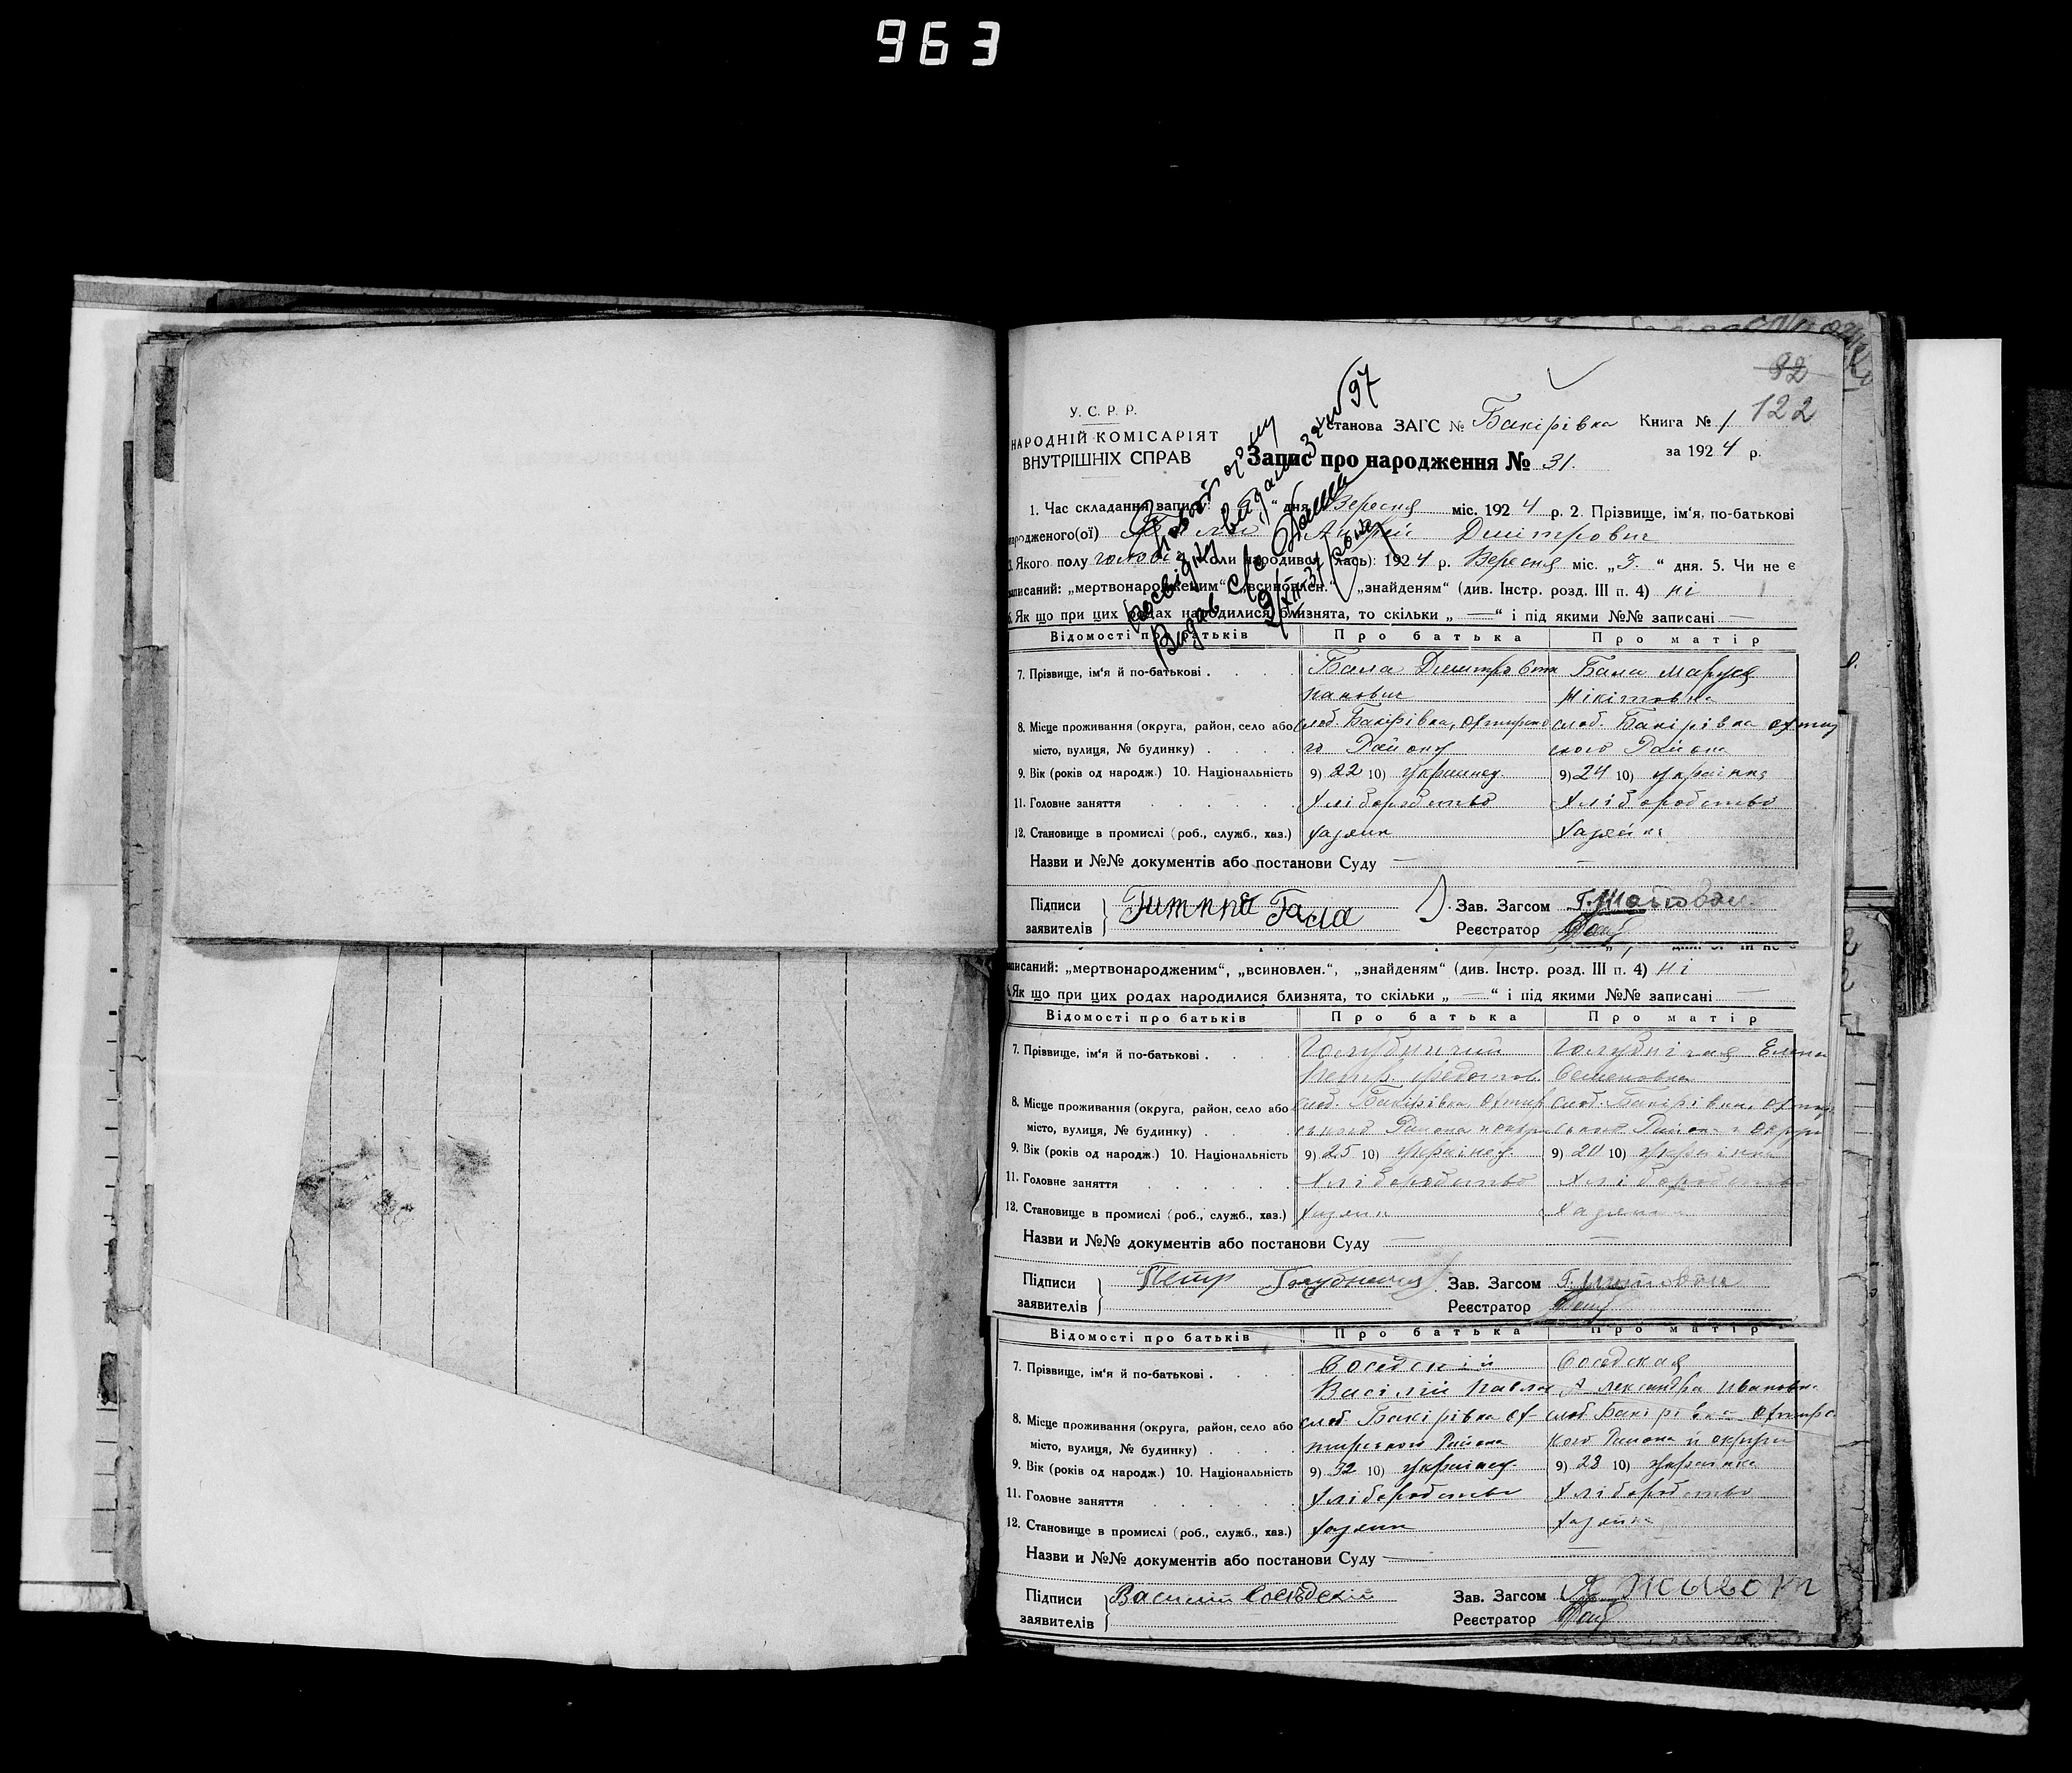 963
82
122
У. С. Р. Р.
НАРОДНІЙ КОМІСАРІЯТ
ВНУТРІШНІХ СПРАВ
станова ЗАГС № Бакірівка Книга № 1
за 192 4 р.
Запис про народження № 31.
1. Час складання запису дня Вересня міс. 192 4 р. 2. Прізвище, ім'я, по-батькові
народженого(ої) Андрій Дмітрович
3. Якого полу Коли народився (лась): 192 4 р. Вересня міс. „ 3. “ дня. 5. Чи не є
записаний: „мертвонародженим“ „всиновлен.“ „знайденям“ (див. Інстр. розд. III п. 4) ні
6. Як що при цих родах народилися близнята, то скільки „ — “ і під якими №№ записані —
Відомості про батьків Про батька Про матір
7. Прізвище, ім'я й по-батькові . Бала Дмитро Сте Бала Маруся
панович Нікітовна
8. Місце проживання (округа, район, село або слоб. Бакірівка, слоб. Бакірівка
місто, вулиця, № будинку) . го Району ского Района
9. Вік (років од народж.) 10. Національність 9) 22 10) Украинец 9) 24 10) Украінка
11. Головне заняття Хліборобство Хліборобство
12. Становище в промислі (роб., служб., хаз.) Хазяин Хазяйка
Назви и №№ документів або постанови Суду —
Підписи
заявителів
Зав. Загсом
Реєстратор
записаний: „мертвонародженим“, „всиновлен.“, „знайденям“ (див. Інстр. розд. III п. 4) ні
Як що при цих родах народилися близнята, то скільки „ — “ і під якими №№ записані —
Відомості про батьків Про батька Про матір
7. Прізвище, ім'я й по-батькові . Голубничий Голубничая Елена
Петр Федотов Семеновна
8. Місце проживання (округа, район, село або слоб. Бакірівка, Охтир слоб. Бакірівка,
місто, вулиця, № будинку) . ського Района ського Района
9. Вік (років од народж.) 10. Національність 9) 25 10) Украінец 9) 20 10) Украінка
11. Головне заняття Хліборобство Хліборобство
12. Становище в промислі (роб., служб., хаз.) Хазяин Хазяйка
Назви и №№ документів або постанови Суду —
Підписи Петр Голубничий
заявителів
Зав. Загсом
Реєстратор
Відомості про батьків Про батька Про матір
7. Прізвище, ім'я й по-батькові . Соседский Соседская
Васілій Павлов Александра Ивановн
8. Місце проживання (округа, район, село або слоб Бакірівка Ох- слоб Бакірівка
місто, вулиця, № будинку) . тирського Района кого Района и округи
9. Вік (років од народж.) 10. Національність 9) 32 10) Украинец 9) 28 10) Украінка
11. Головне заняття Хліборобство Хліборобство
12. Становище в промислі (роб., служб., хаз.) Хазяин Хазяйка
Назви и №№ документів або постанови Суду —
Підписи Василий Сосѣдский
заявителів
Зав. Загсом
Реєстратор